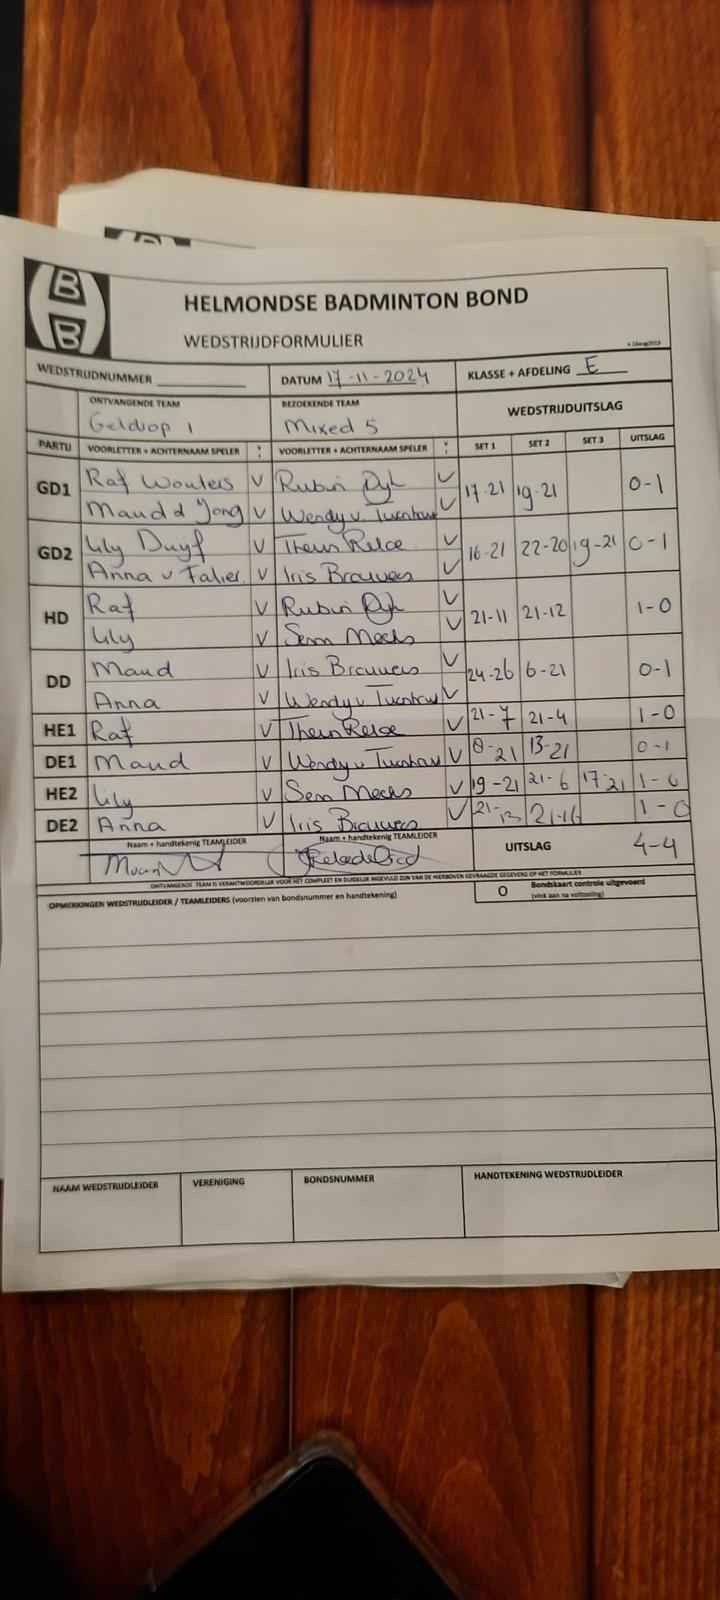 HELMONDSE BADMINTON BOND
WEDSTRIJDFORMULIER
WEDSTRIJDNUMMER
DATUM 17-11-2024
KLASSE + AFDELING E
ONTVANGENDE TEAM
BEZOEKENDE TEAM
WEDSTRIJDUITSLAG
Geldrop 1
Mixed 5
PARTIJ VOORLETTER + ACHTERNAAM SPELER VOORLETTER + ACHTERNAAM SPELER SET 1 SET 2 SET 3 UITSLAG
GD1 Raf Wouters V Rubin V 17-21 19-21 0-1
Maud d Jong V Wendy v Turnhout V
GD2 Lily Duyf V Theun V 16-21 22-20 19-21 0-1
Anna v V Iris Brouwers V
HD Raf V Rubin V 21-11 21-12 1-0
Lily V V
DD Maud V Iris Brouwers V 24-26 6-21 0-1
Anna V Wendy v Turnhout V
HE1 Raf V Theun V 21-7 21-4 1-0
DE1 Maud V Wendy v Turnhout V 8-21 13-21 0-1
HE2 Lily V V 19-21 21-6 17-21 1-0
DE2 Anna V Iris Brouwers V 21-13 21-16 1-0
Naam + handtekenig TEAMLEIDER
Naam + handtekenig TEAMLEIDER
UITSLAG 4-4
ONTVANGENDE TEAM IS VERANTWOORDELIJK VOOR HET COMPLEET EN DUIDELIJK INGEVULD ZIJN VAN DE HIERBOVEN GEVRAAGDE GEGEVENS OP HET FORMULIER
OPMERKINGEN WEDSTRIJDLEIDER / TEAMLEIDERS (voorzien van bondsnummer en handtekening)
O Bondskaart controle uitgevoerd
(vink aan na voltooiing)
NAAM WEDSTRIJDLEIDER
VERENIGING
BONDSNUMMER
HANDTEKENING WEDSTRIJDLEIDER